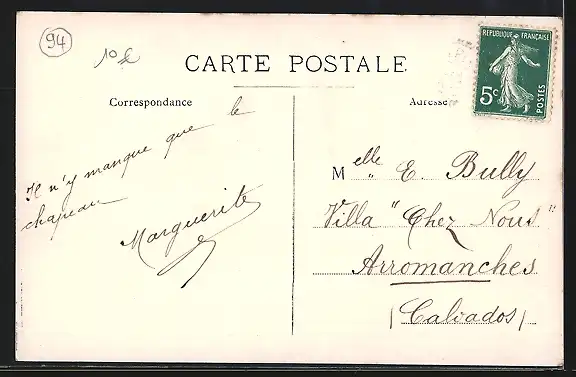 94
10 £
CARTE POSTALE
REPUBLIQUE FRANÇAISE
5c
POSTES
Correspondance
Adresse
Il n'y manque que le
chapeau
Marguerite
Melle E. Bully
Villa "Chez Nous"
Arromanches
(Calvados)